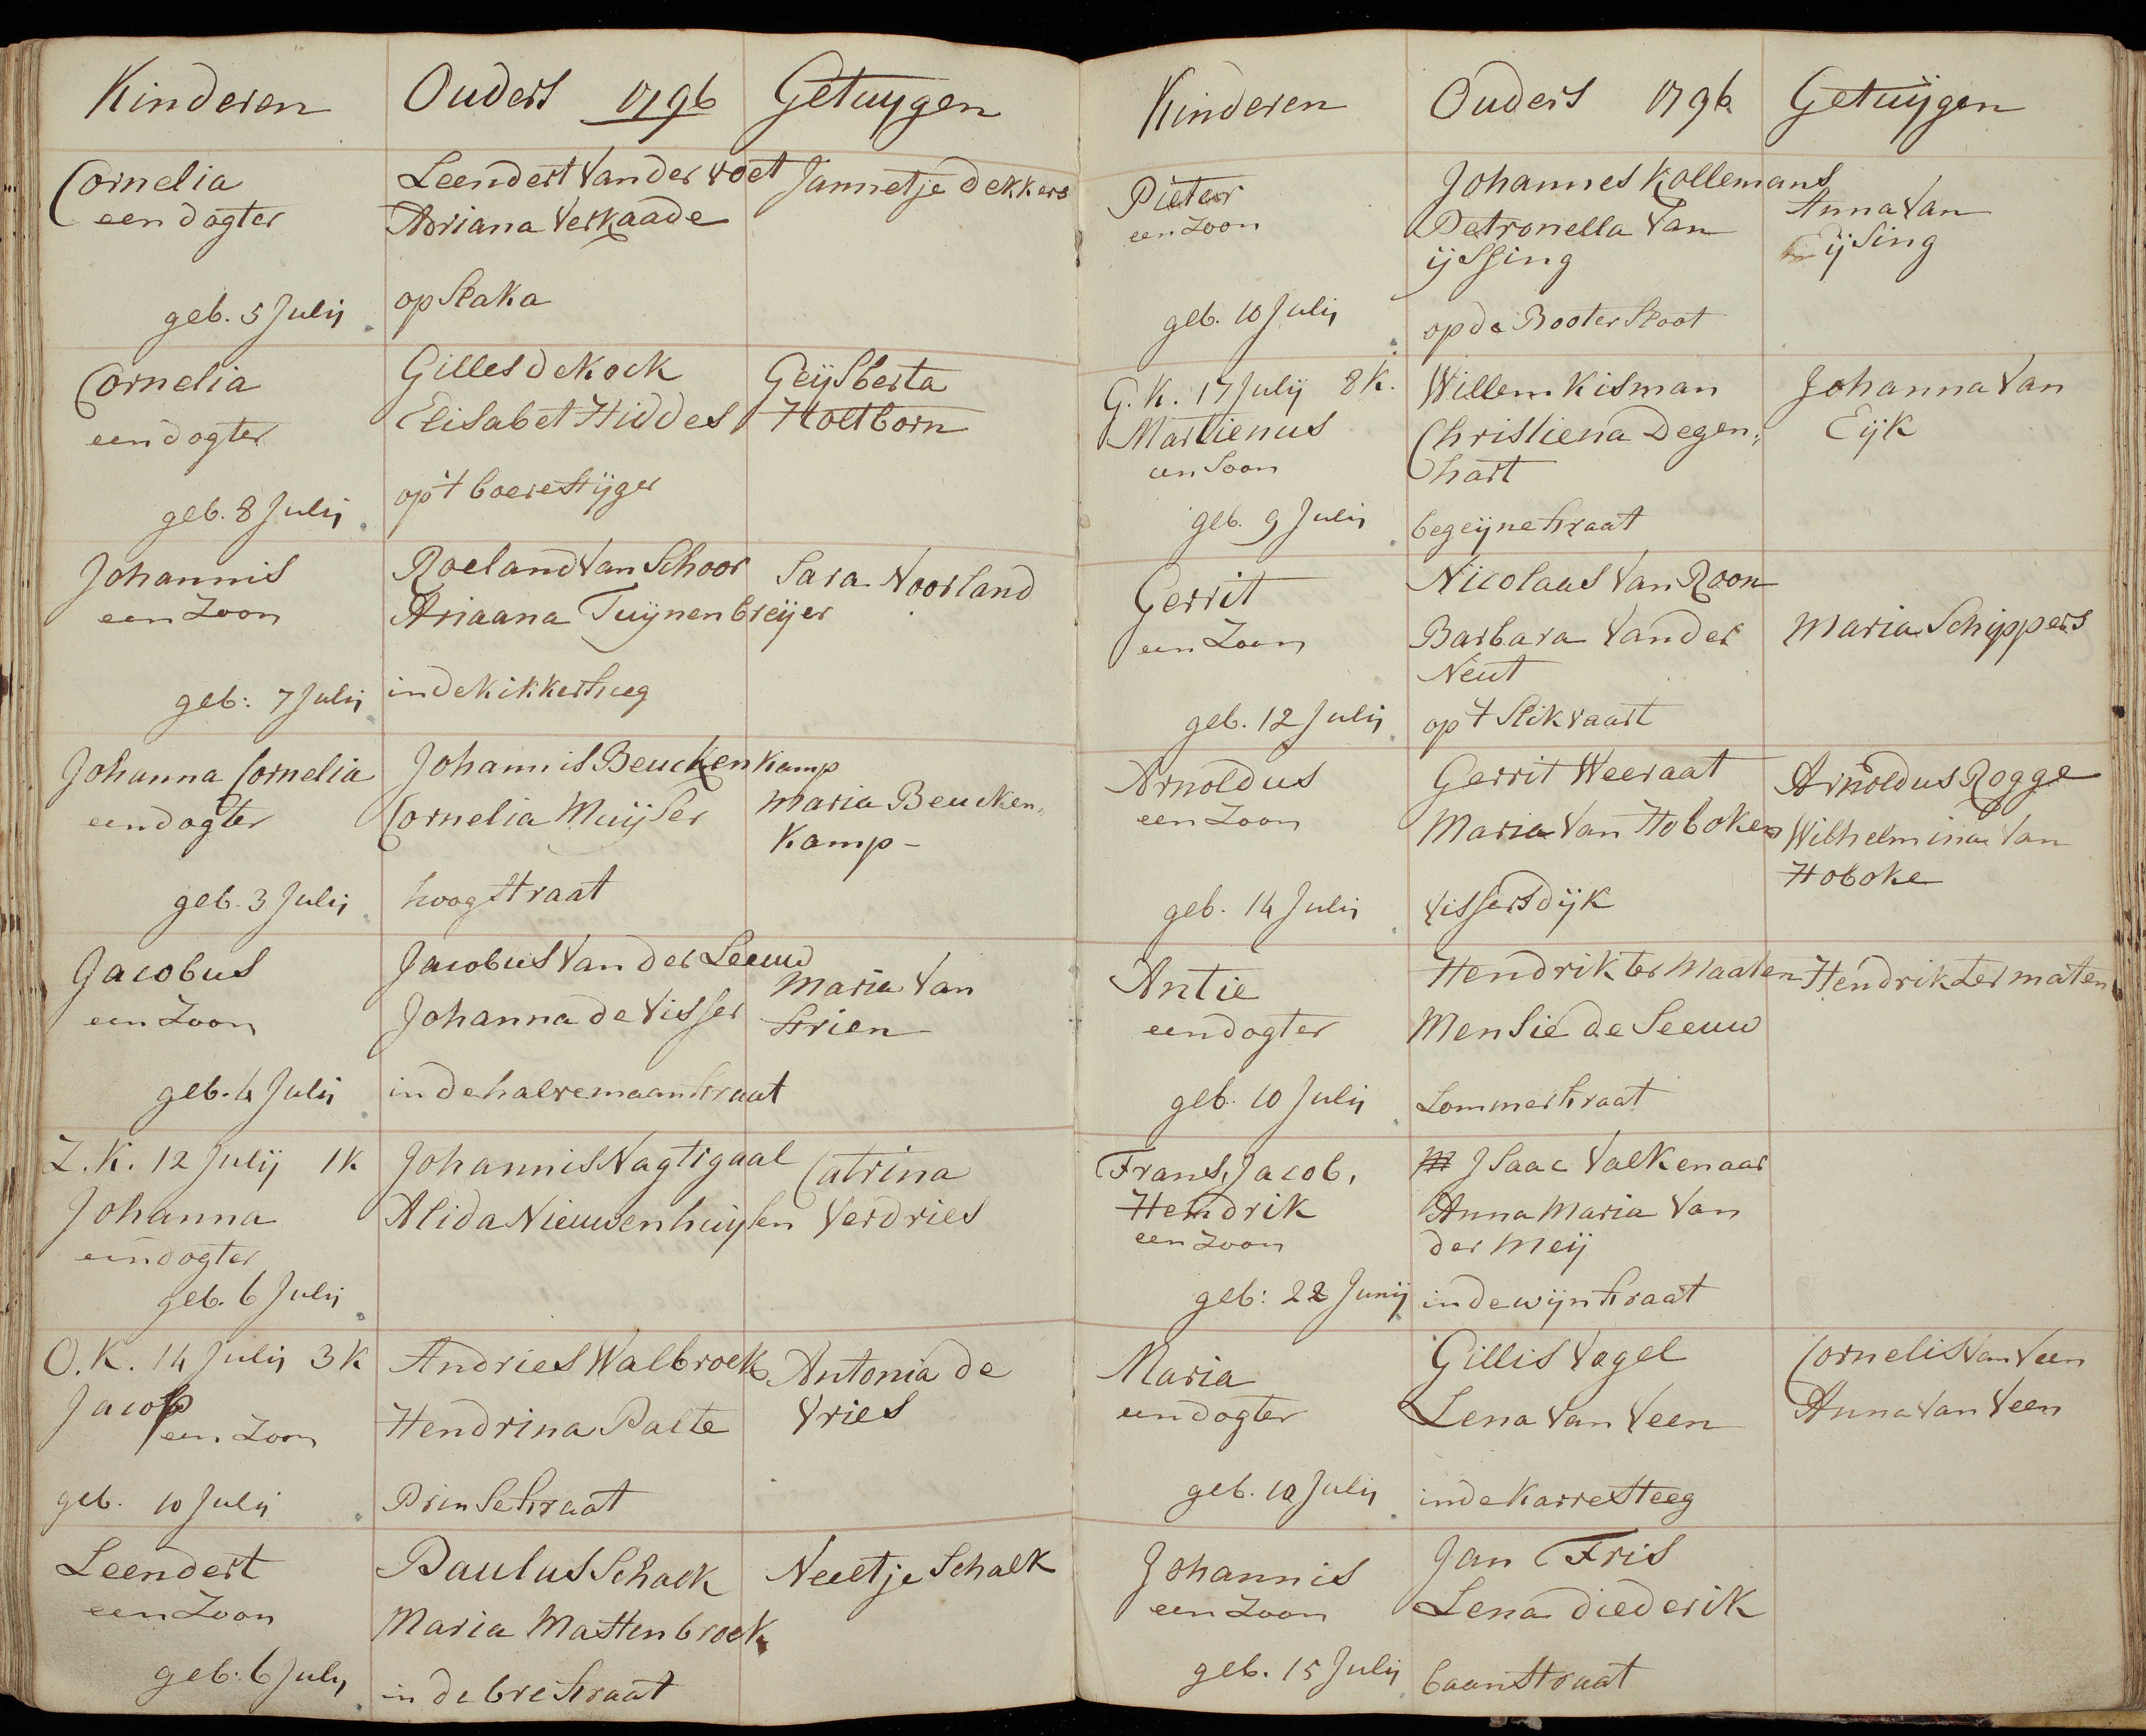 Kinderen
Ouders 1796
Getuygen
Cornelia
een dogter
geb. 5 Julij
Leendert Van der Voet
Adriana Verkaade
op Staka
Jannetje dekkers
Cornelia
een dogter
geb. 8 Julij
Gilles de Kock
Elisabet Hiddes
op 't boerestijger
Geijsberta
Holtborn
Johannis
een Zoon
geb: 7 Julij
Roeland Van Schoor
Ariaana Tuijnenbreijer
in de Kikkersteeg
Sara Noorland
Johanna Cornelia
een dogter
geb. 3 Julij
Johannis Beuckenkamp
Cornelia Muijser
hoogstraat
Maria Beucken,
Kamp -
Jacobus
een Zoon
geb. 4 Julij
Jacobus Van der Leeuw
Johanna de Visser
in de halvemaanstraat
Maria Van
Strien
Z.K. 12 Julij 1K
Johanna
een dogter
geb. 6 Julij
Johannis Nagtigaal
Alida Nieuwenhuijsen
Catrina
Verdries
O.K. 14 Julij 3K
Jacob
een Zoon
geb. 10 Julij
Andries Walbroek
Hendrina Palte
Prinsestraat
Antonia de
Vries
Leendert
een Zoon
geb: 6 July
Paulus Schalk
Maria Mastenbroek
in de brestraat
Neeltje Schalk
Kinderen
Ouders 1796
Getuijgen
Pieter
een Zoon
geb. 10 Julij
Johannes Kollemans
Petronella Van
ijssing
op de Booter Sloot
Anna Van
Eijsing
G.K. 17 Julij 8K.
Martienus
een Soon
geb. 9 Julij
Willem Kisman
Christiena Degen,
hart
begeijnestraat
Johanna Van
Eijk
Gerrit
een Zoon
geb. 12 Julij
Nicolaas Van Roon
Barbara Van der
Neut
op 't Slikvaart
Maria Schippers
Arnoldus
een Zoon
geb. 14 Julij
Gerrit Weeraat
Maria Van Hoboken
Vissersdijk
Arnoldus Rogge
Wilhelmina Van
Hoboke
Antie
een dogter
geb. 10 Julij
Hendrik ter Maaten
Mensie de Leeuw
Lommerstraat
Hendrik ter maten
Frans, Jacob,
Hendrik
een Zoon
geb: 22 Junij
Isaac Valkenaar
Anna Maria Van
der Meij
in de wijnstraat
Maria
een dogter
geb. 10 Julij
Gillis Vogel
Lena Van Veen
in de Karresteeg
Cornelis Van Veen
Anna Van Veen
Johannis
een Zoon
geb. 15 Julij
Jan Fris
Lena diederik
baanstraat